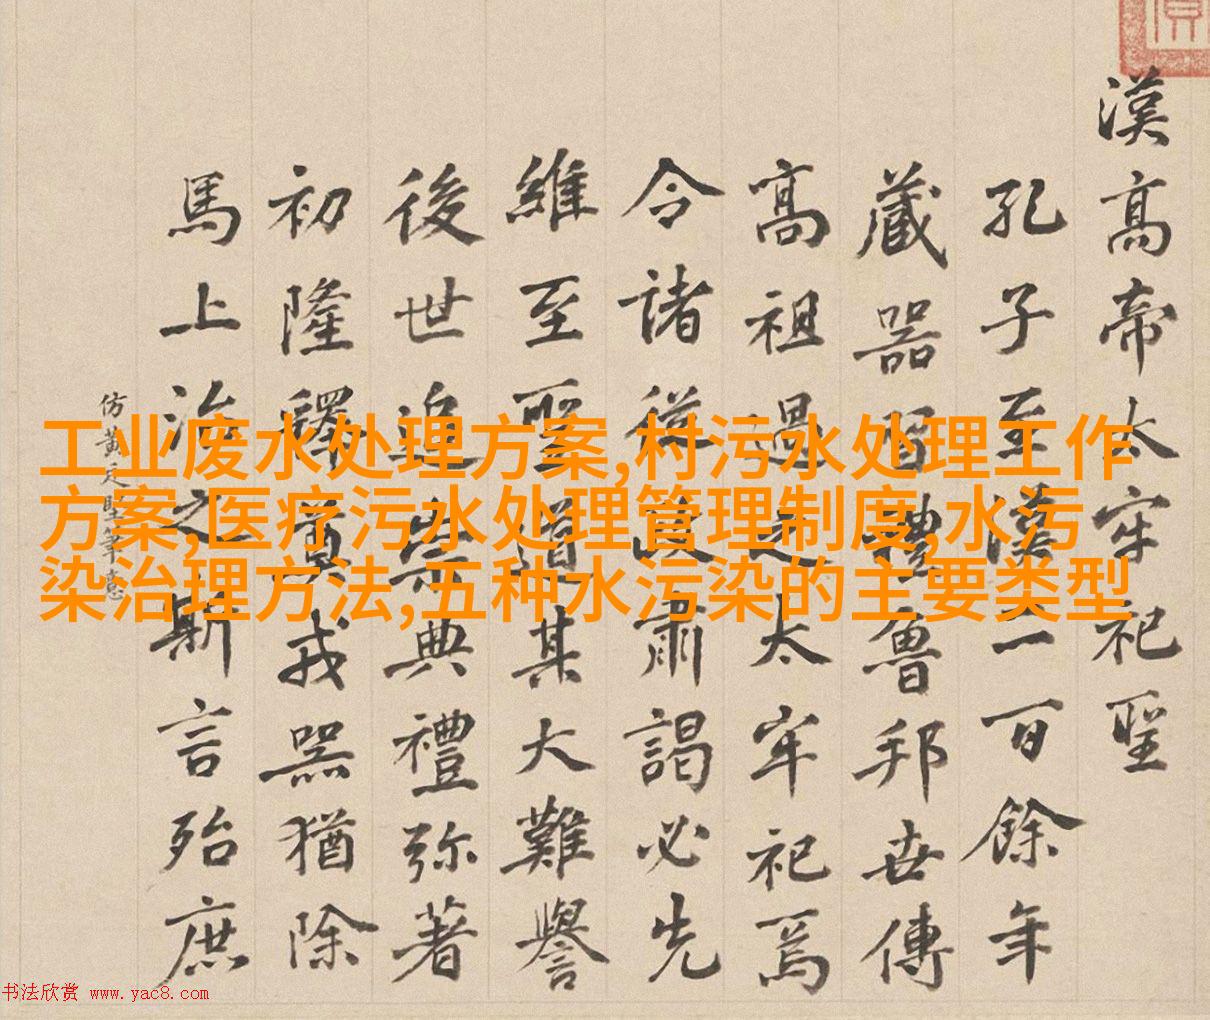 漢高帝太牢祀聖
孔子至漢二百餘年
藏器習禮魯邦世傳
高祖過之太牢祀焉
令諸從政肅謁必先
維至聖其大難譽
後世追崇典禮弥著
初隆釋奠戎器猶除
馬上治之斯言殆庶
仿黄庭堅筆意
工业废水处理方案,村污水处理工作
方案,医疗污水处理管理制度,水污
染治理方法,五种水污染的主要类型
书法欣赏 www.yac8.com